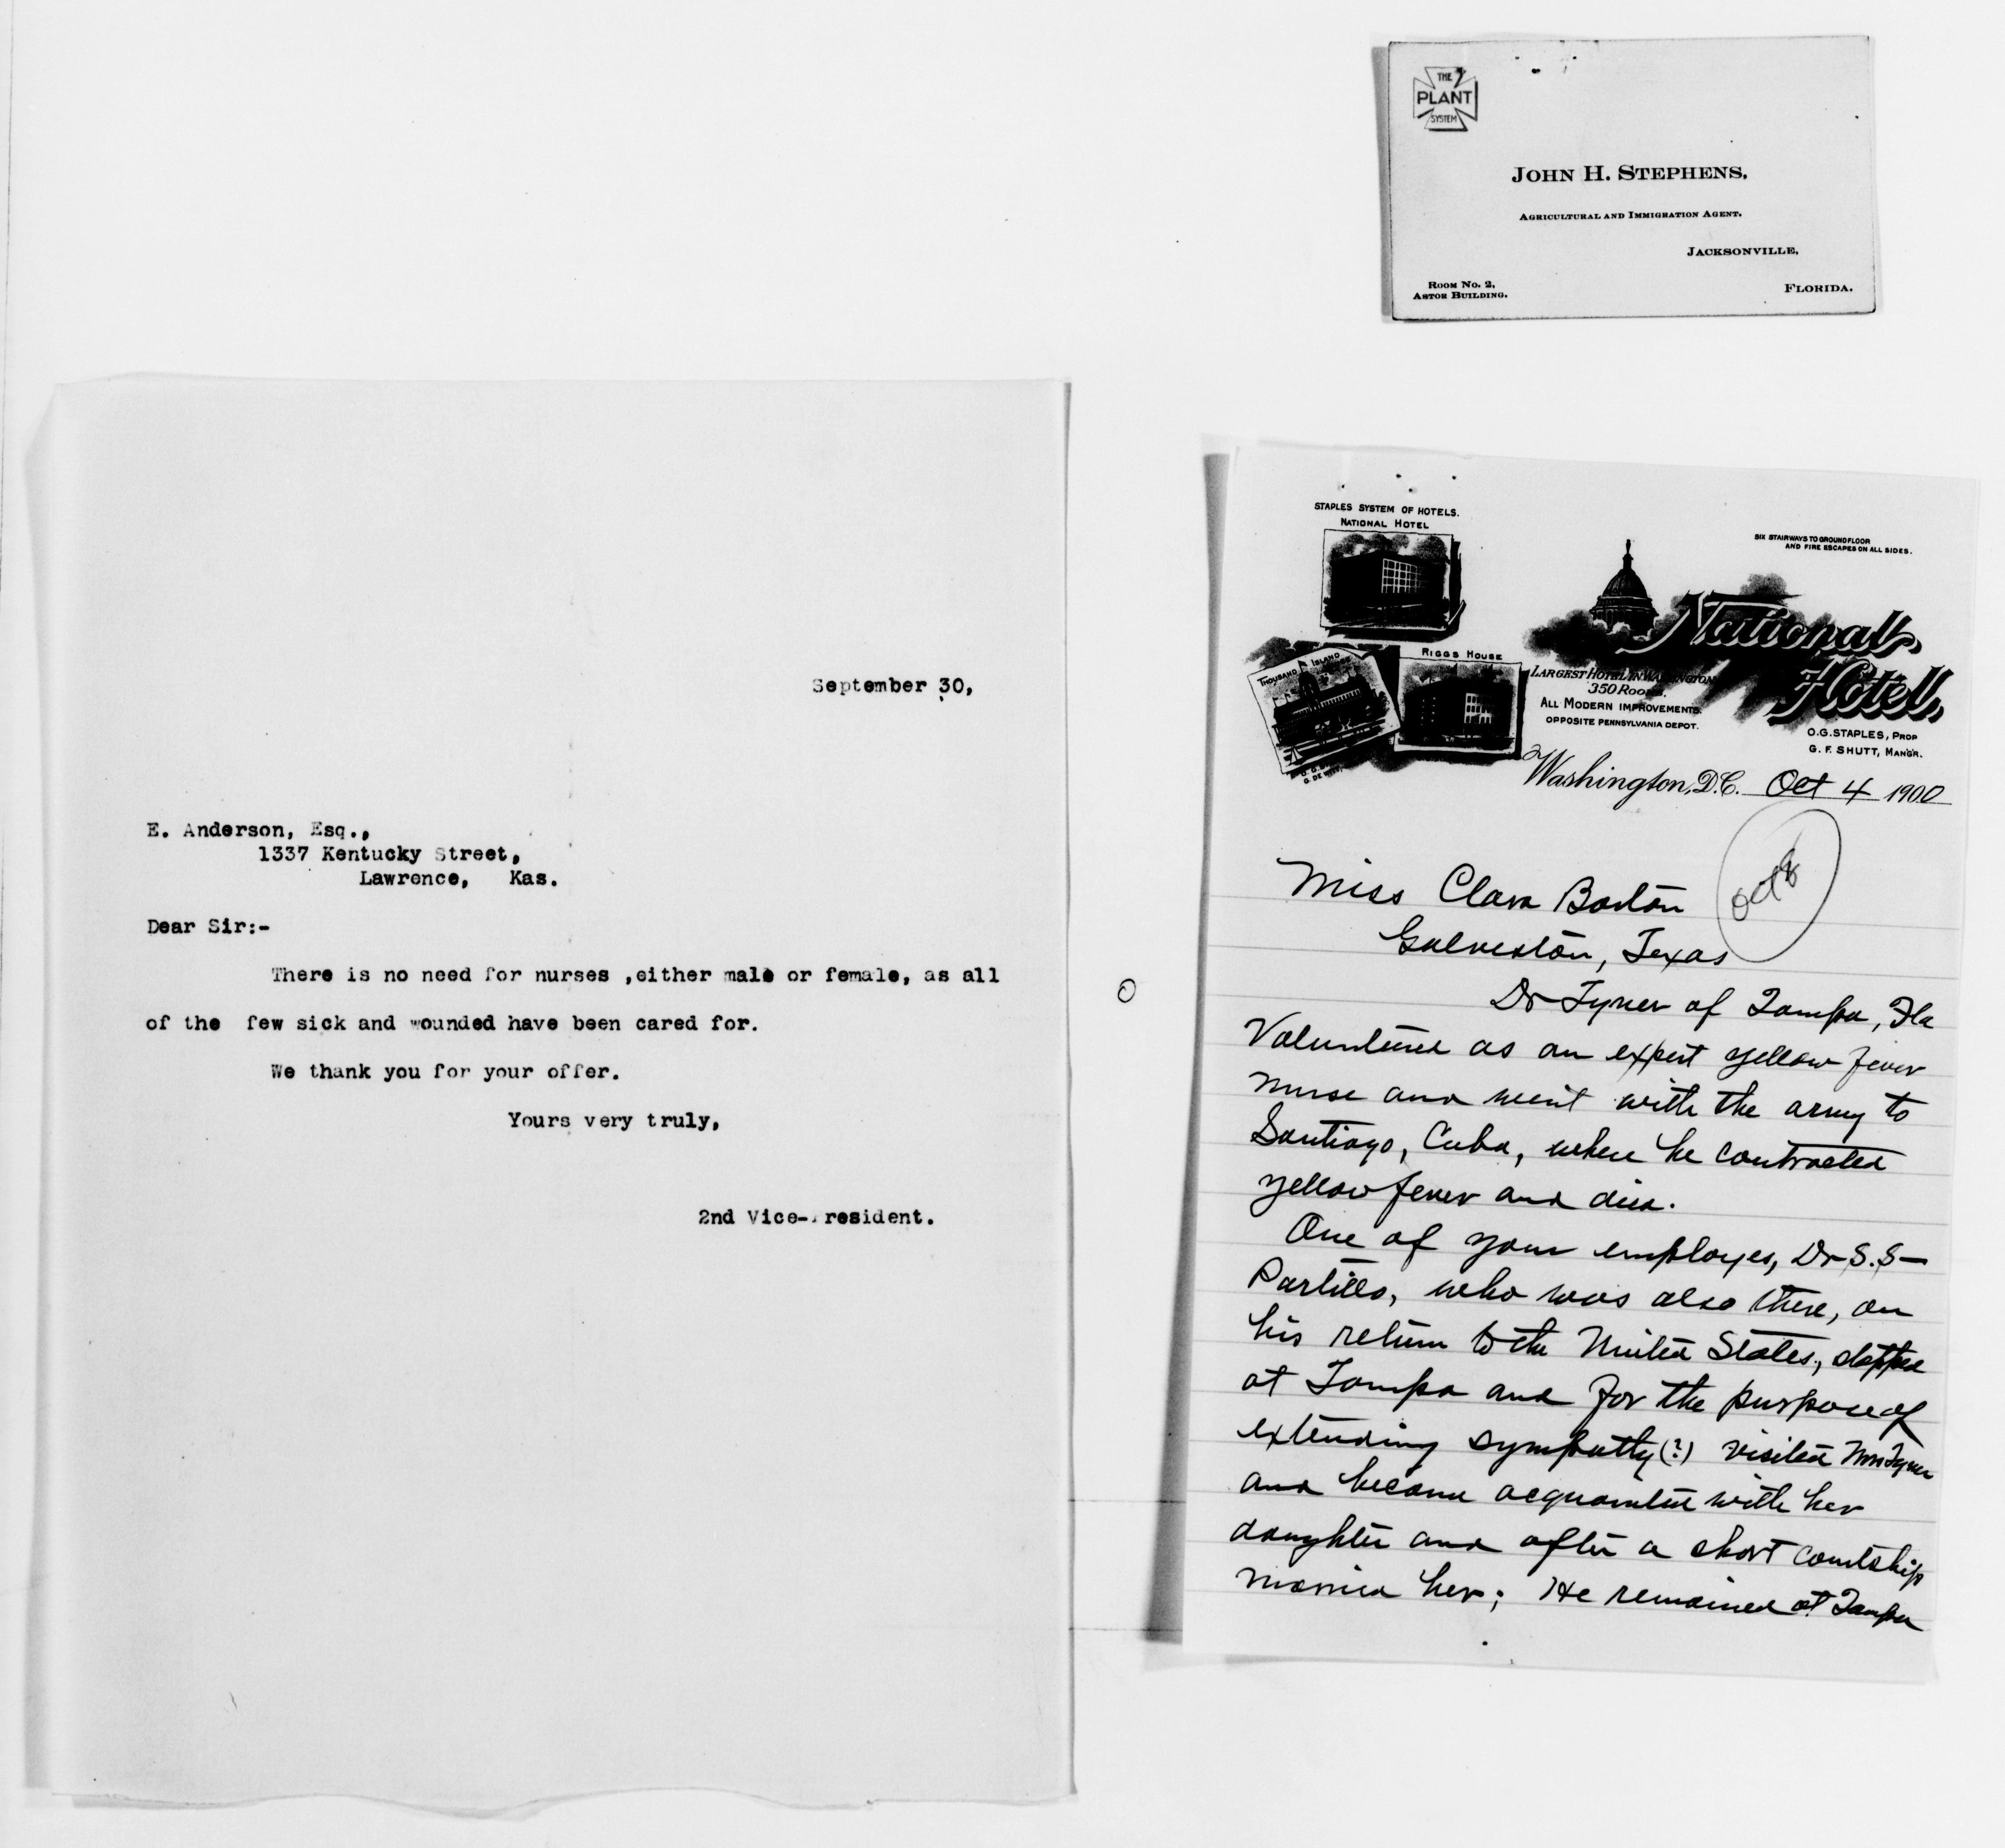 September 30,
E. Anderson, Esq.,
1337 Kentucky Street,
Lawrence, Kas.
Dear Sir:-
There is no need for nurses ,either male or female, as all
of the few sick and wounded have been cared for.
We thank you for your offer.
Yours very truly,
2nd Vice-President.
THE
PLANT
SYSTEM
JOHN H. STEPHENS,
AGRICULTURAL AND IMMIGRATION AGENT.
JACKSONVILLE,
FLORIDA.
ROOM NO. 2,
ASTOR BUILDING.
STAPLES SYSTEM OF HOTELS.
NATIONAL HOTEL
SIX STAIRWAYS TO GROUND FLOOR
AND FIRE ESCAPES ON ALL SIDES.
THOUSAND ISLAND HOUSE
RIGGS HOUSE
National
Hotel,
LARGEST HOTEL IN WASHINGTON
350 ROOMS.
ALL MODERN IMPROVEMENTS.
OPPOSITE PENNSYLVANIA DEPOT.
O.G. STAPLES, PROP
G. F. SHUTT, MANGR.
Washington, D.C. Oct 4 1900
Oct 8
Miss Clara Barton
Galveston, Texas
Dr Tyner of Tampa, Fla
Volunteered as an expert yellow fever
nurse and went with the army to
Santiago, Cuba, where he contracted
yellow fever and died.
One of your employes, Dr S. S-
Partillo, who was also there, on
his return to the United States, stopped
at Tampa and for the purpose of
extending sympathy(?) visited Mrs Tyner
and became acquainted with her
daughter and after a short courtship
married her; He remained at Tampa